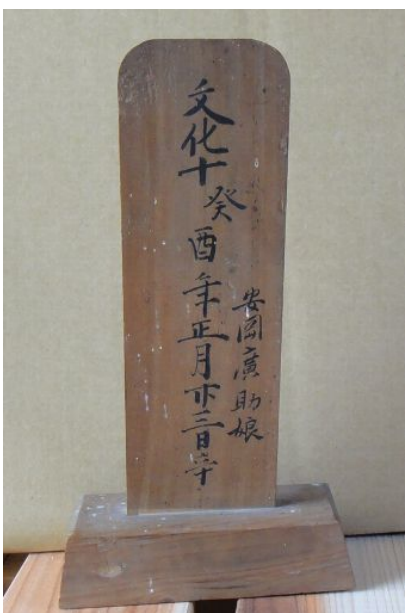 文化十癸酉年正月廾三日卒
安岡廣助娘